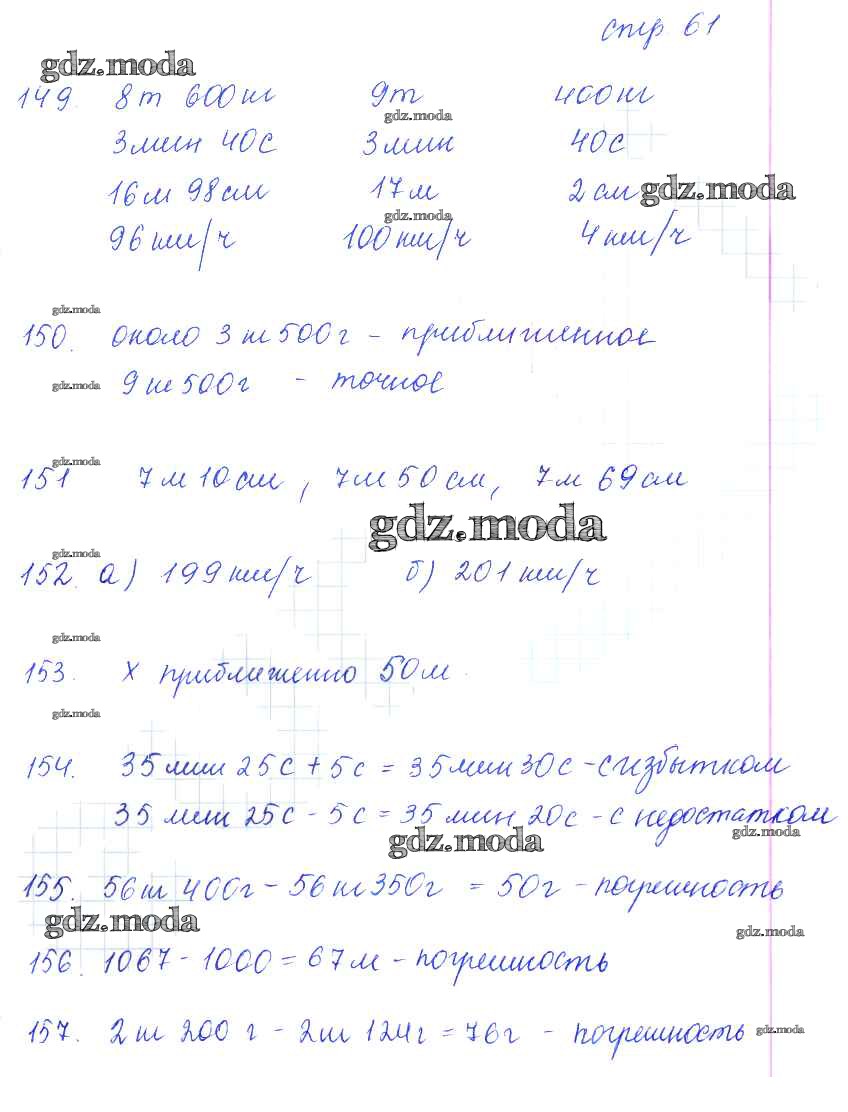 стр. 61
gdz.moda
149. 8т 600кг 9т 400кг
gdz.moda
3мин 40с 3мин 40с
16м 98см 17м 2см gdz.moda
gdz.moda
96км/ч 100км/ч 4км/ч
gdz.moda
150. около 3кг500г - приближенное
gdz.moda 9кг500г - точное
gdz.moda
151 7м10см, 7м50см, 7м 69см
gdz.moda
gdz.moda
152. а) 199км/ч б) 201км/ч
gdz.moda
153. х приближенно 50м.
gdz.moda
154. 35мин25с+5с=35мин30с-с избытком
35мин 25с-5с=35мин 20с-с недостатком
gdz.moda gdz.moda
155. 56кг 400г-56кг350г =50г-погрешность
gdz.moda gdz.moda
156. 1067-1000=67м-погрешность
157. 2кг 200г-2кг 124г=76г - погрешность gdz.moda